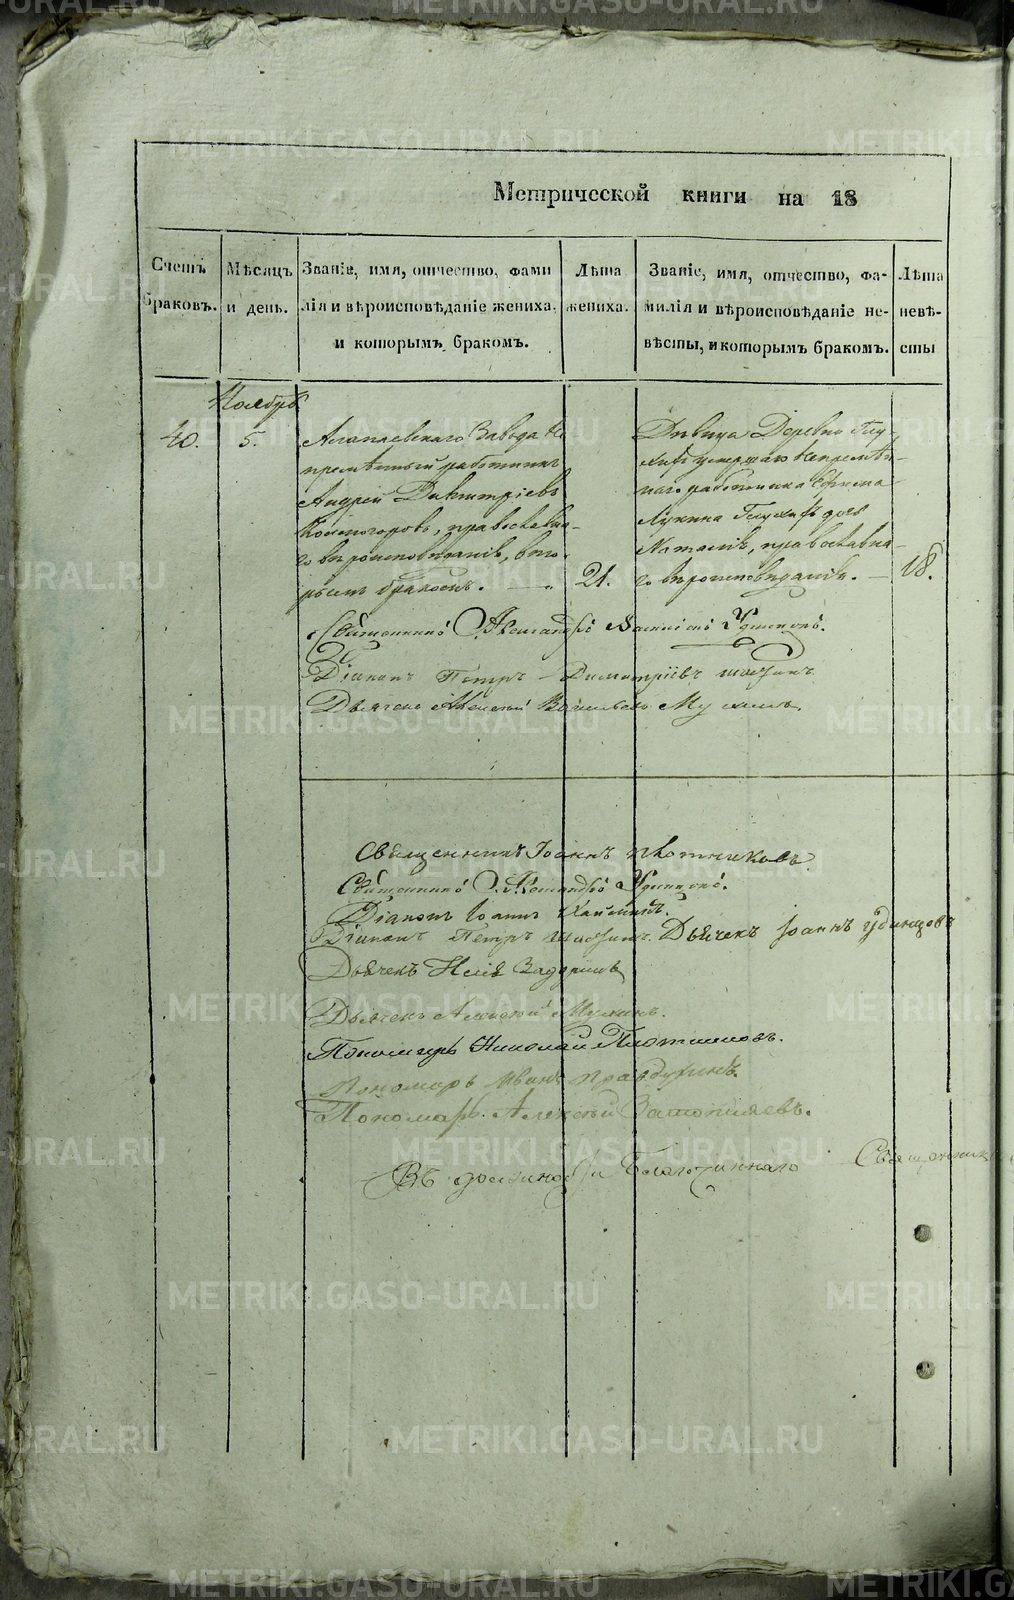 Метрической книги на 18
Счетъ браковъ.
Мѣсяцъ и день.
Званіе, имя, отчество, фами
лія и вѣроисповѣданіе жениха,
и которымъ бракомъ.
Лѣта
жениха.
Званіе, имя, отчество, фа-
милія и вѣроисповѣданіе не-
вѣсты, и которымъ бракомъ.
Лѣта
невѣ-
сты
Ноябрь
40.
5.
Алапаевскаго Завода Не
премѣнный работникъ
Андрей Димитріевъ
Колмогоровъ, православна-
го вѣроисповѣданія, вто-
рымъ бракомъ.
21.
Дѣвица Деревни Глу-
хихъ умершаго Непремѣн-
наго работника Ефима
Лукина Глухихъ дочь
Наталія, православна-
го вѣроисповѣданія.
18.
Священникъ Александръ Удинцовъ.
Діаконъ Петръ Димитріевъ
Дьячекъ Алексей Васильевъ Мухинъ.
Священникъ Іоаннъ Плотниковъ
Священникъ Александръ Удинцовъ.
Діаконъ Іоаннъ
Діаконъ Петръ Дьячекъ Іоаннъ Удинцовъ
Дьячекъ
Дьячекъ Алексей Мухинъ.
Пономарь Николай Плотниковъ.
Пономарь Иванъ Правдухинъ.
Пономарь Алексей
Въ должности Благочиннаго Священникъ
METRIKI.GASO-URAL.RU